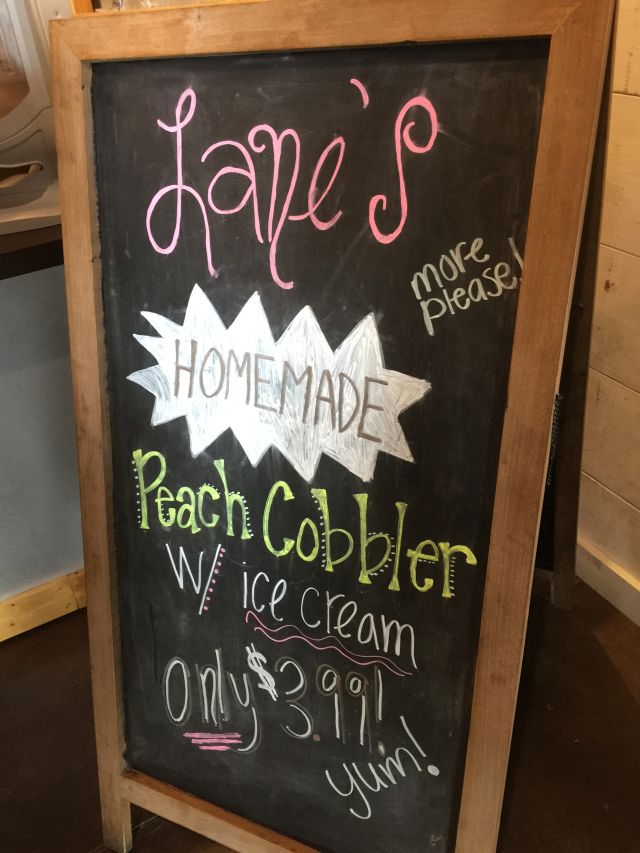 Lane's
more
please!
HOMEMADE
Peach Cobbler
w/ ice cream
Only $3.99!
yum!